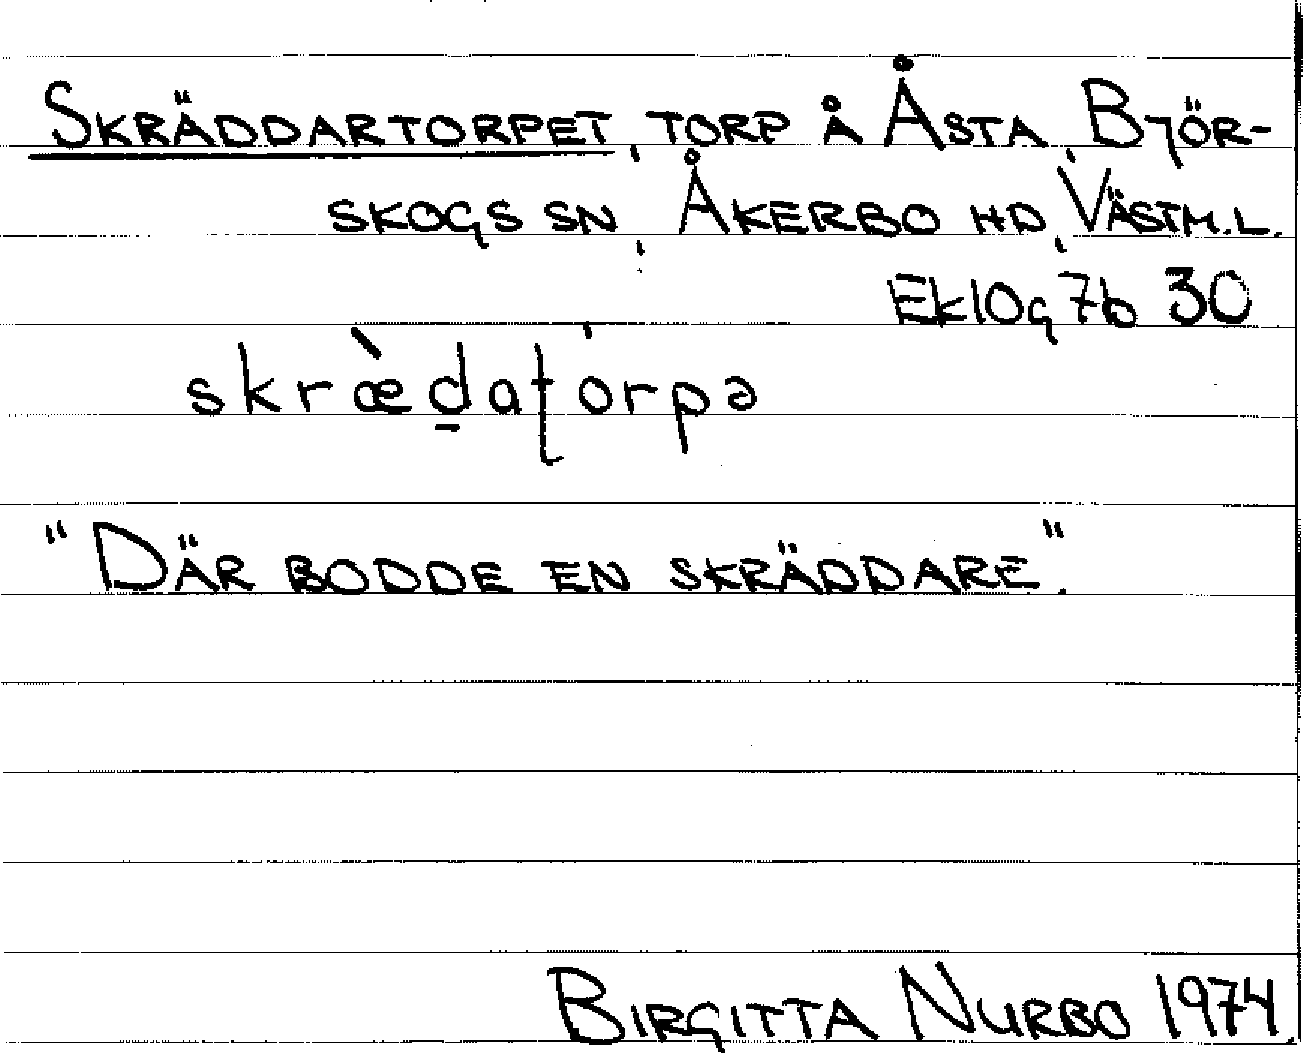 SKRÄDDARTORPET, TORP Å ÅSTA, BJÖR-
SKOGS SN, ÅKERBO HD, VÄSTM.L.
Ek10g7b 30
skræ̀d̲aʈórpə
"DÄR BODDE EN SKRÄDDARE".
BIRGITTA NURBO 1974.